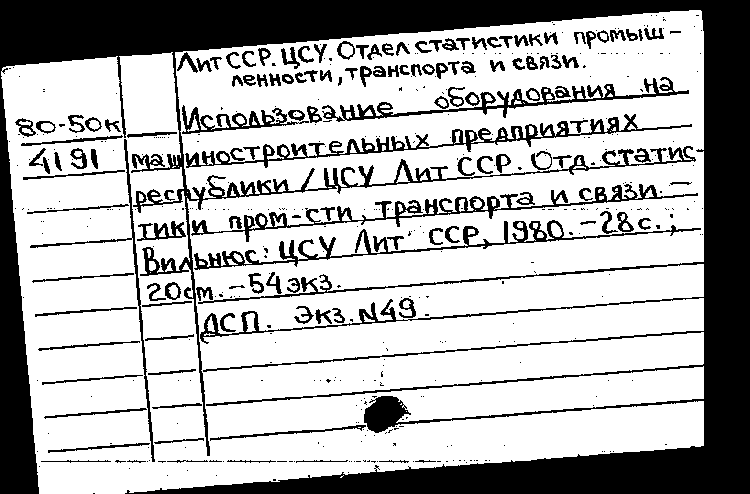 Лит ССР. ЦСУ. Отдел статистики промыш-
ленности, транспорта и связи.
80-50к
4191
Использование оборудования на
машиностроительных предприятиях
республики / ЦСУ Лит ССР. Отд. статис-
тики пром-сти, транспорта и связи. –
Вильнюс: ЦСУ Лит ССР, 1980. – 28 с.;
20 см. – 54 экз.
ДСП. Экз. N49.